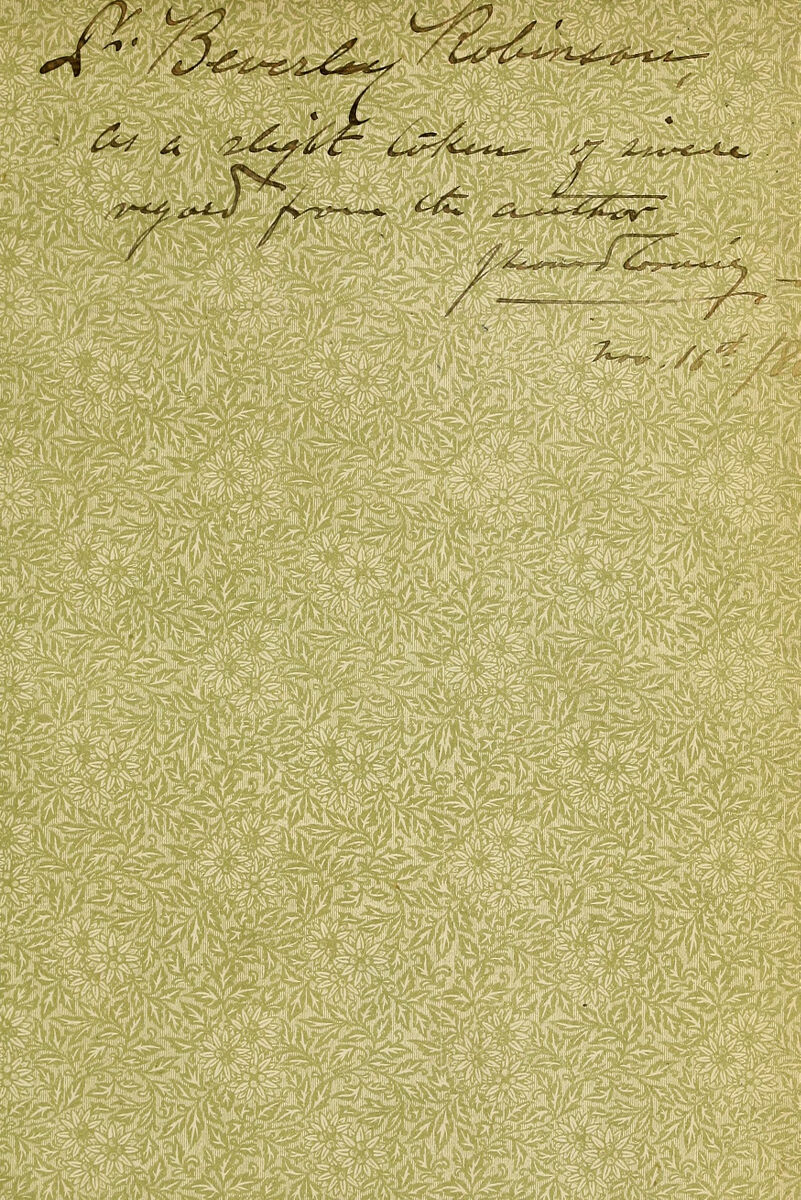 Dr. Beverley Robinson,
as a slight token of sincere
regard from the author
Nov. 16th, 18